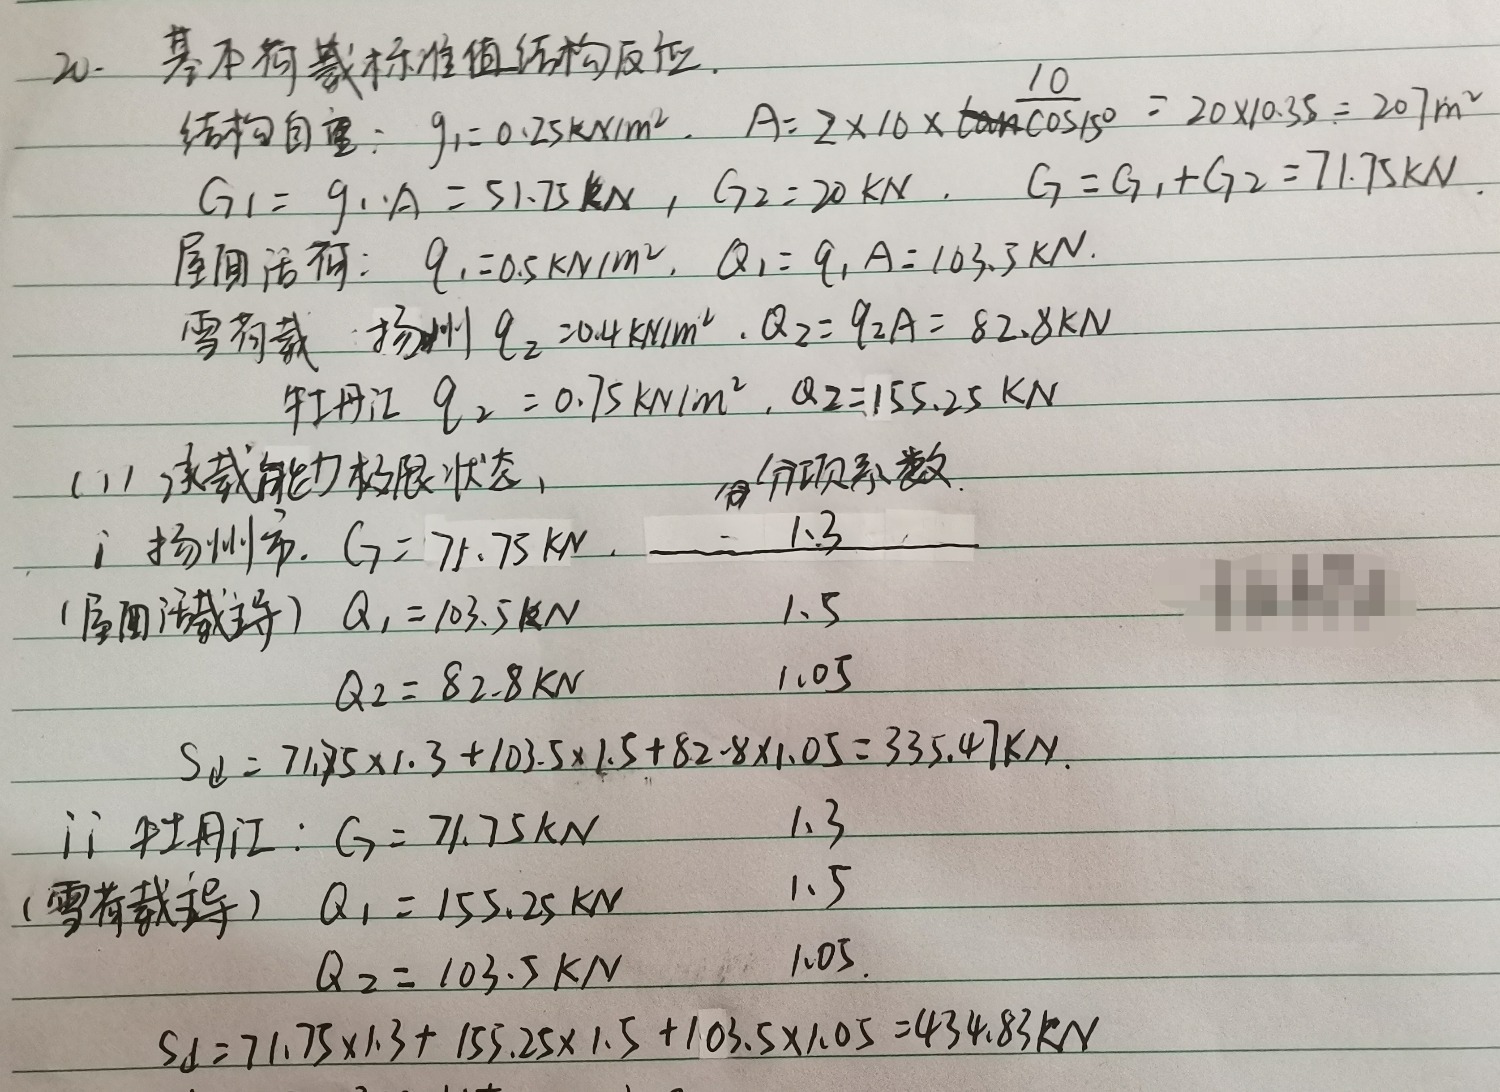 20. 基本荷载标准值结构反应.
结构自重: g₁=0.25KN/m². A=2×10×10/cos15° = 20×10.35=207m²
G₁= g₁·A =51.75KN, G₂=20KN. G=G₁+G₂=71.75KN.
屋面活荷: q₁=0.5KN/m². Q₁=q₁A=103.5KN.
雪荷载 扬州 q₂=0.4KN/m². Q₂=q₂A=82.8KN
牡丹江 q₂=0.75KN/m². Q₂=155.25KN
(1) 承载能力极限状态, 分项系数.
i 扬州市. G=71.75KN. 1.3
(屋面活载主导) Q₁=103.5KN 1.5
Q₂=82.8KN 1.05
Sd=71.75×1.3+103.5×1.5+82.8×1.05=335.47KN.
ii 牡丹江: G=71.75KN 1.3
(雪荷载主导) Q₁=155.25KN 1.5
Q₂=103.5KN 1.05.
Sd=71.75×1.3+155.25×1.5+103.5×1.05=434.83KN